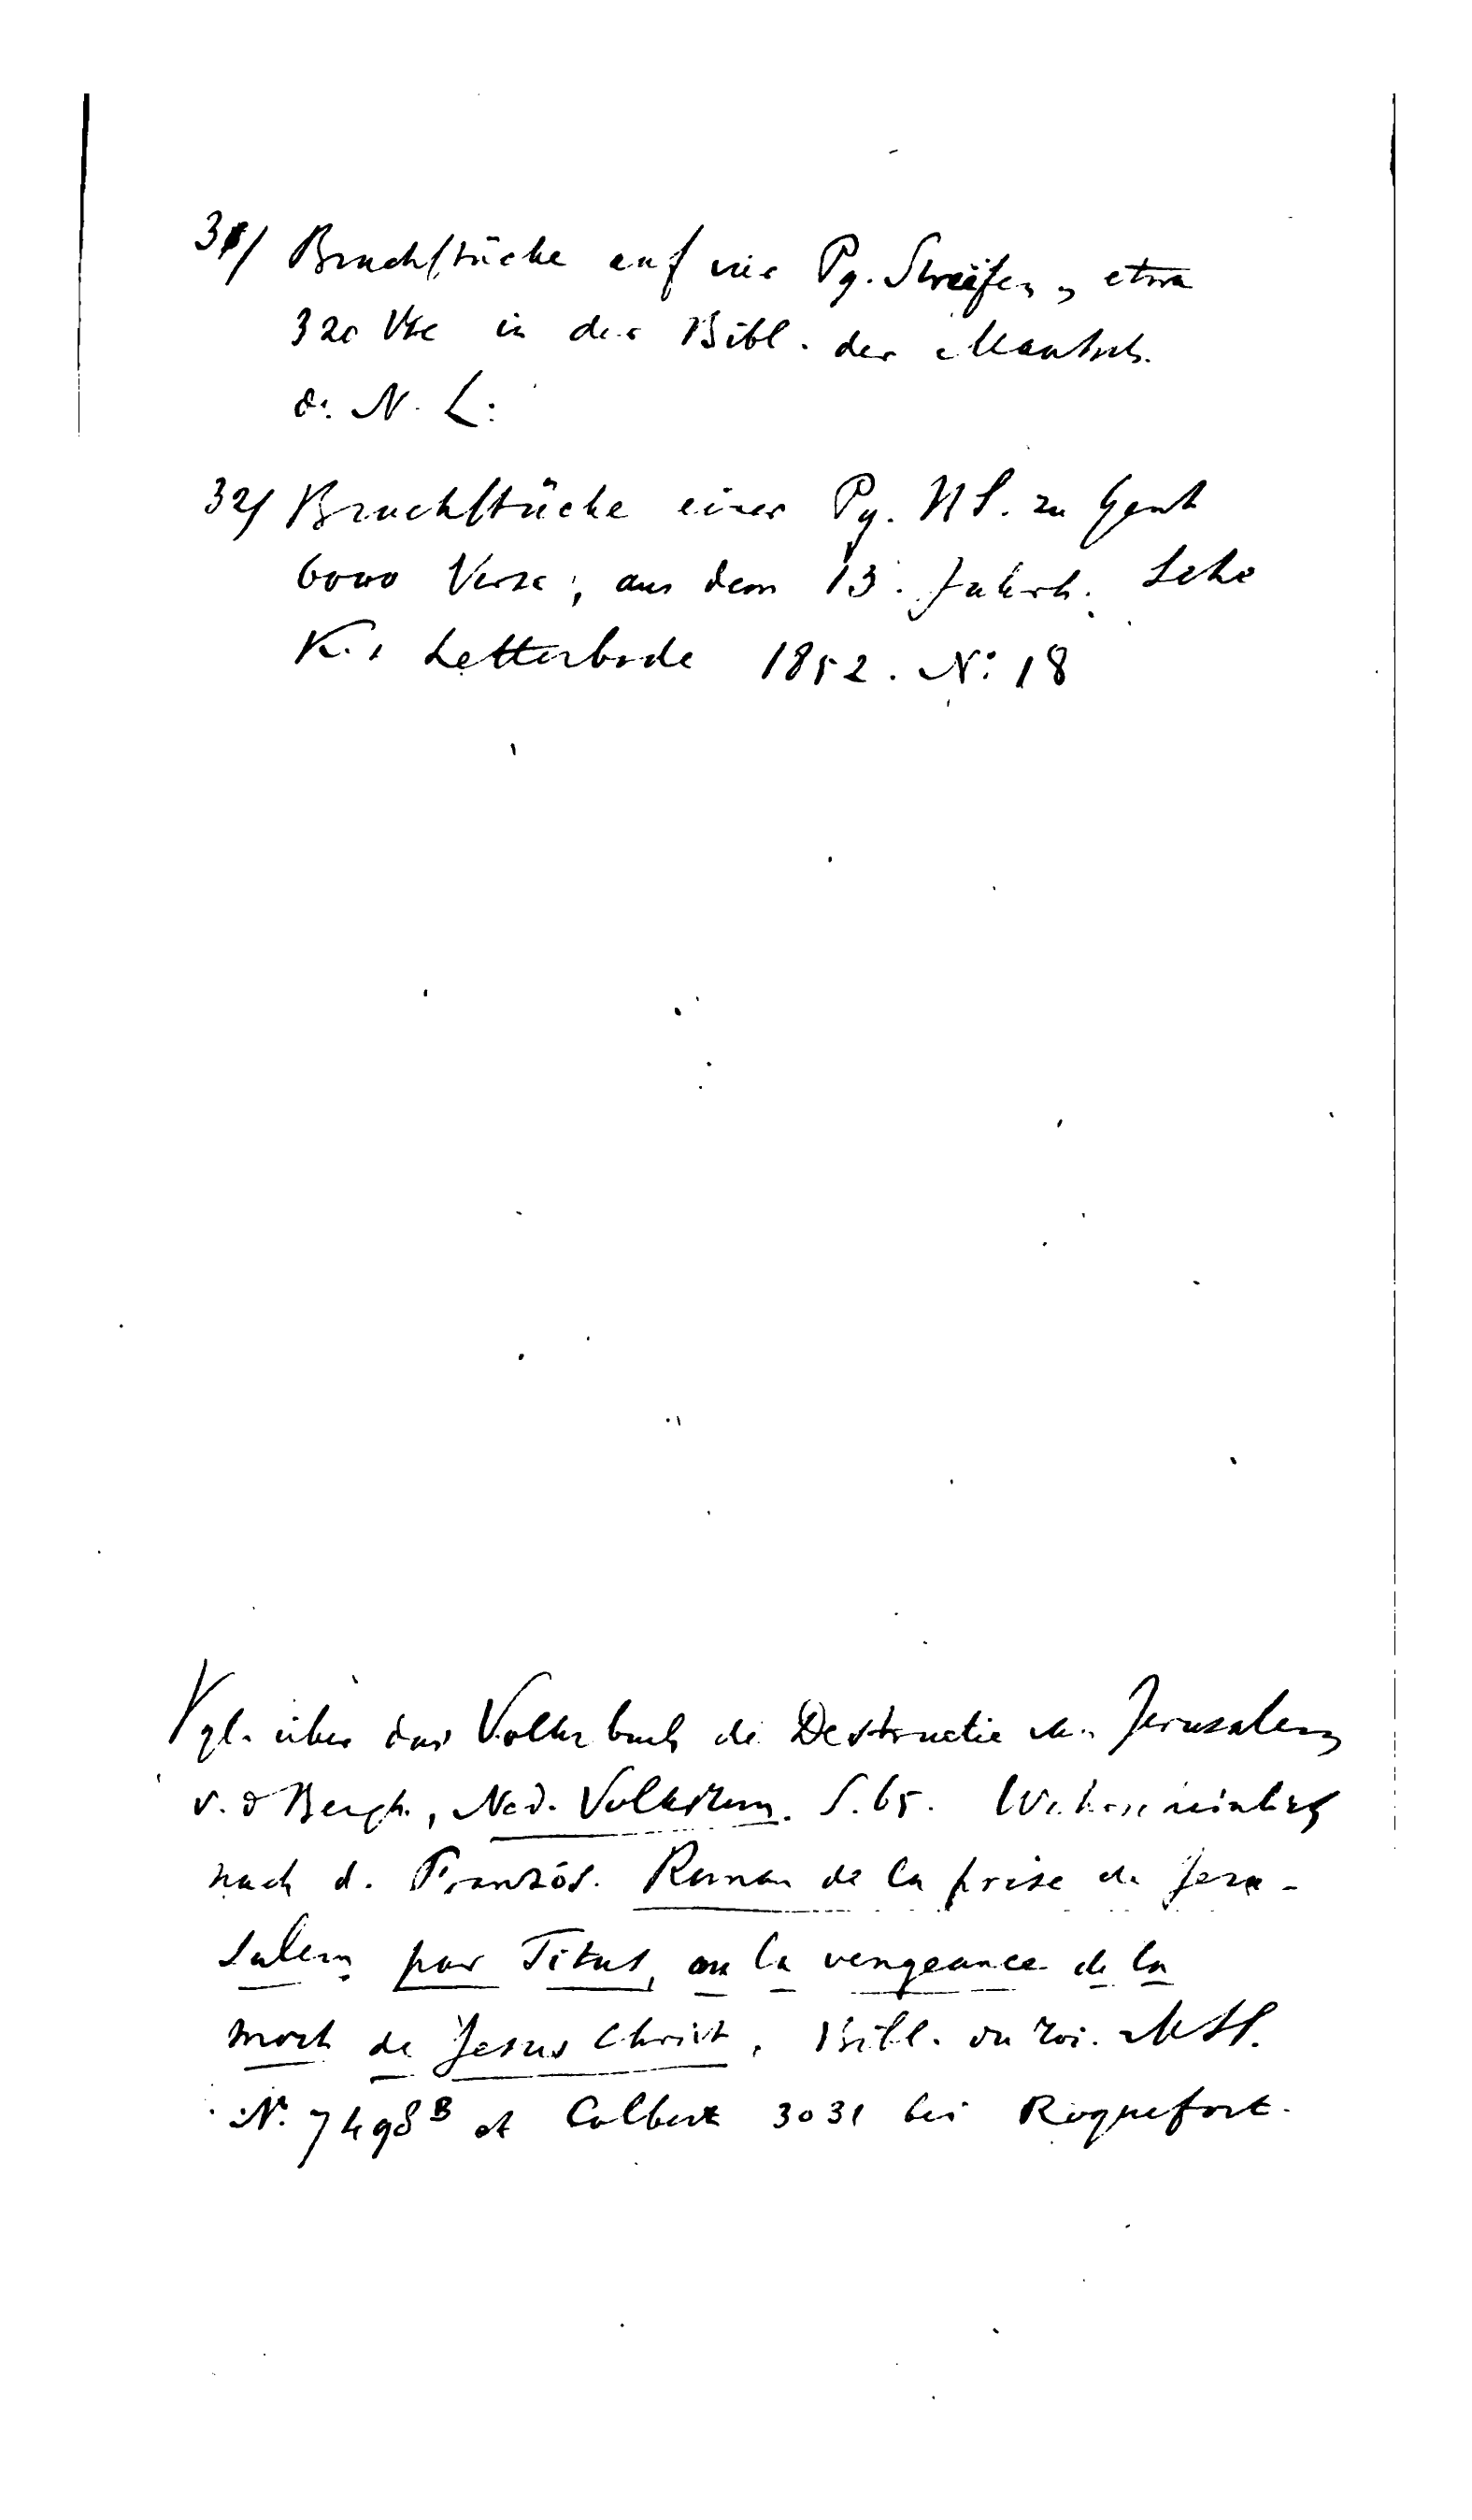 31/ Bruchstücke auf vier Pg. Streifen, etwa
320 Vse in der Bibl. der Maatsch.
d. N. L:
32/ Bruchstücke einer Pg. HS. zu Gent
6000 Verse, aus dem 13. Jahrh.
K. Letterbode 1852. No 18
Vgl. über das Volksbuch de Destructie van Jerusalem
v. d Bergh, Ned. Volksrom. S. 65. Wahrscheinlich
nach d. Französ. Roman de la prise de Jeru-
salem par Titus, ou la vengeance de la
mort de Jesus Christ, Bibl. du roi. MSS.
No. 7498 B et Colbert 3031 bei Roquefort.